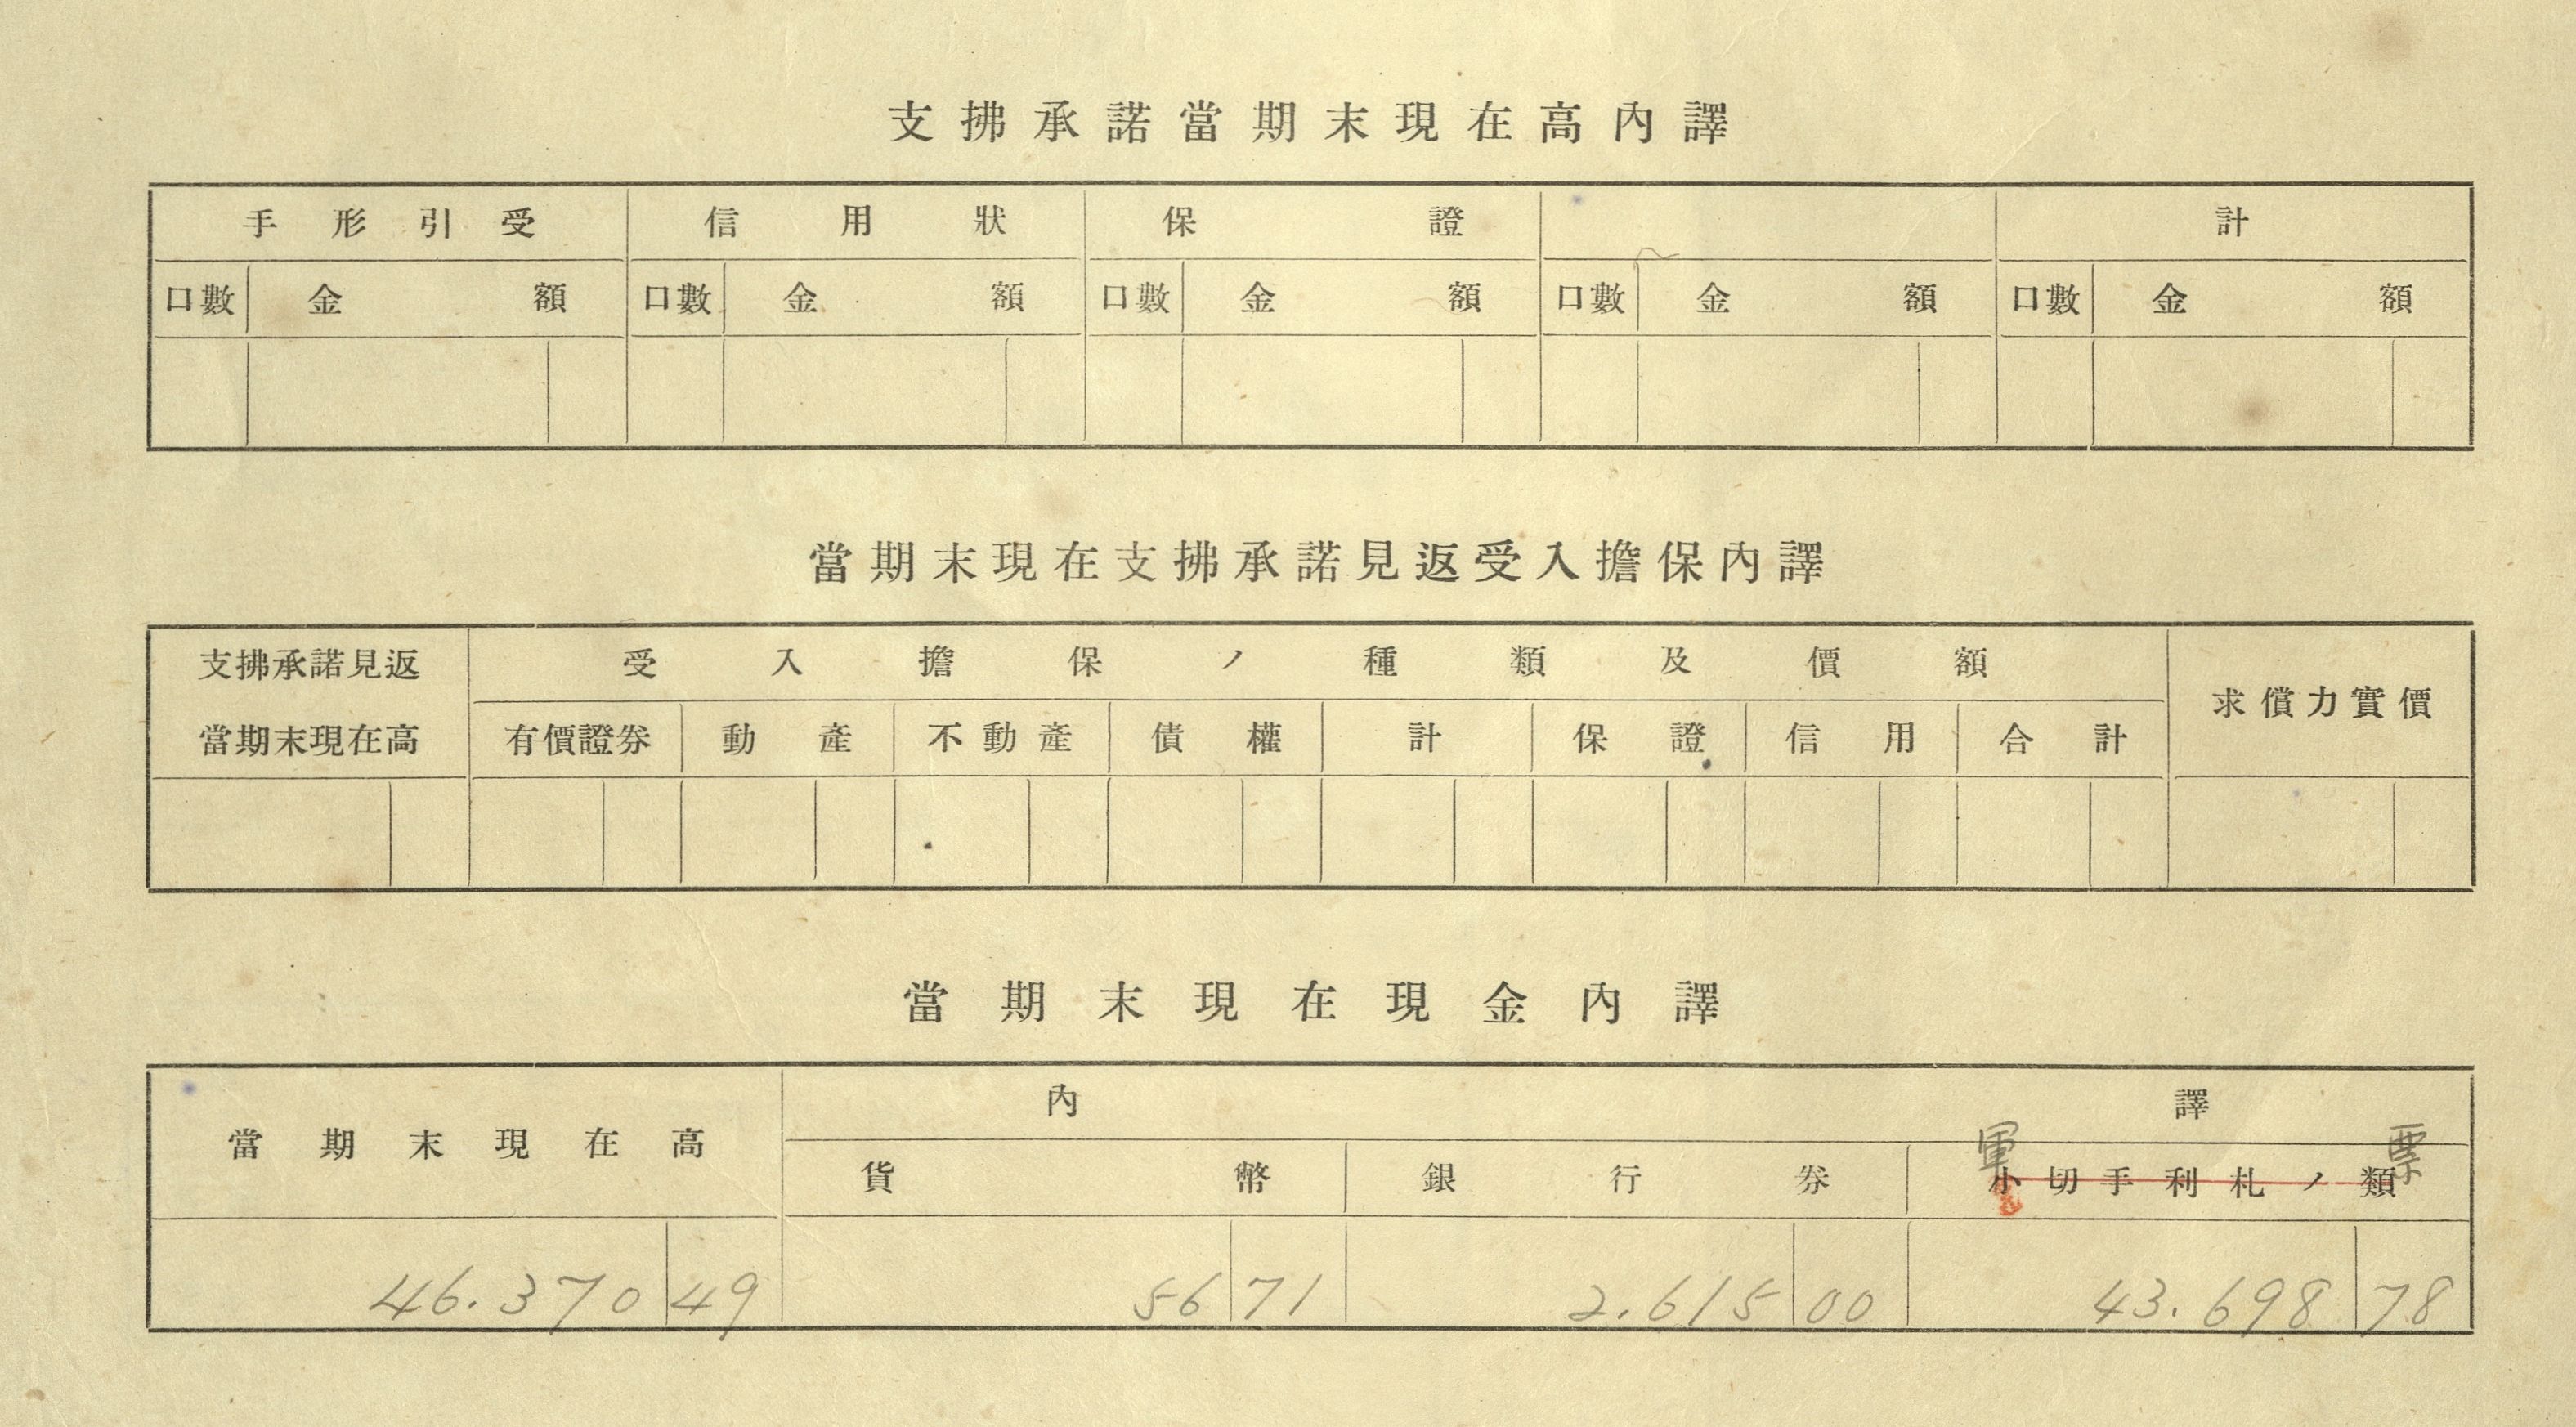 支拂承諾當期末現在高內譯
手形引受 信用狀 保證 計
口數 金額 口數 金額 口數 金額 口數 金額 口數 金額
當期末現在支拂承諾見返受入擔保內譯
支拂承諾見返 受入擔保ノ種類及價額 求償力實價
當期末現在高 有價證券 動產 不動產 債權 計 保證 信用 合計
當期末現在現金內譯
當期末現在高 內譯
軍票
貨幣 銀行券 小切手利札ノ類
46.370 49 56 71 2.615 00 43.698 78